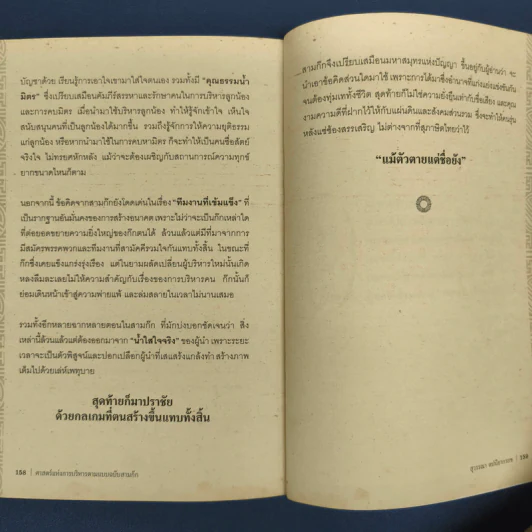 บัญชาด้วย เรียนรู้การเอาใจเขามาใส่ใจตนเอง รวมทั้งมี "คุณธรรมน้ำ
มิตร" ซึ่งเปรียบเสมือนคัมภีร์สรรหาและรักษาคนในการบริหารลูกน้อง
และการคบมิตร เมื่อนำมาใช้บริหารลูกน้อง ทำให้รู้จักเข้าใจ เห็นใจ
สนับสนุนคนที่เป็นลูกน้องได้มากขึ้น รวมถึงรู้จักการให้ความยุติธรรม
แก่ลูกน้อง หรือหากนำมาใช้ในการคบหามิตร ก็จะทำให้เป็นคนซื่อสัตย์
จริงใจ ไม่ทรยศหักหลัง แม้ว่าจะต้องเผชิญกับสถานการณ์ความทุกข์
ยากขนาดไหนก็ตาม
นอกจากนี้ ข้อคิดจากสามก๊กยังโดดเด่นในเรื่อง "ทีมงานที่เข้มแข็ง" ที่
เป็นรากฐานอันมั่นคงของการสร้างอนาคต เพราะไม่ว่าจะเป็นก๊กเหล่าใด
ที่ต่อยอดขยายความยิ่งใหญ่ของก๊กตนได้ ล้วนแล้วแต่มีที่มาจากการ
มีสมัครพรรคพวกและทีมงานที่สามัคคีรวมใจกันแทบทั้งสิ้น ในขณะที่
ก๊กซึ่งเคยแข็งแกร่งรุ่งเรือง แต่ในยามผลัดเปลี่ยนผู้บริหารใหม่นั้นเกิด
หลงลืมละเลยไม่ให้ความสำคัญกับเรื่องของการบริหารคน ก๊กนั้นก็
ย่อมเดินหน้าเข้าสู่ความพ่ายแพ้ และล่มสลายในเวลาไม่นานเสมอ
รวมทั้งอีกหลายฉากหลายตอนในสามก๊ก ที่มักบ่งบอกชัดเจนว่า สิ่ง
เหล่านี้ล้วนแล้วแต่ต้องออกมาจาก "น้ำใสใจจริง" ของผู้นำ เพราะระยะ
เวลาจะเป็นตัวพิสูจน์และปอกเปลือกผู้นำที่เสแสร้งแกล้งทำ สร้างภาพ
เดิมไปด้วยเล่ห์เพทุบาย
สุดท้ายก็มาปราชัย
ด้วยกลเกมที่ตนสร้างขึ้นแทบทั้งสิ้น
158 | ศาสตร์แห่งการบริหารตามแบบฉบับสามก๊ก
สามก๊กจึงเปรียบเสมือนมหาสมุทรแห่งปัญญา ขึ้นอยู่กับผู้อ่านว่า จะ
นำเอาข้อคิดส่วนใดมาใช้ เพราะการได้มาซึ่งอำนาจที่แก่งแย่งแข่งขันกัน
จนต้องทุ่มเททั้งชีวิต สุดท้ายก็ไม่ใช่ความยั่งยืนเท่ากับชื่อเสียง และคุณ
งามความดีที่ฝากไว้ให้กับแผ่นดินและสังคมส่วนรวม ซึ่งจะทำให้คนรุ่น
หลังแซ่ซ้องสรรเสริญ ไม่ต่างจากที่สุภาษิตไทยว่าไว้
"แม้ตัวตายแต่ชื่อยัง"
| 159